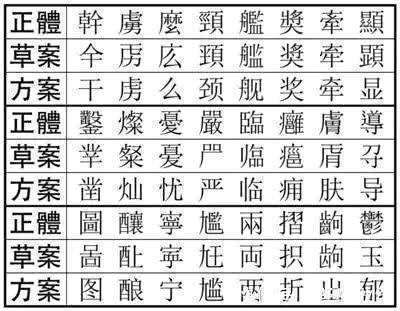 正體 幹 虜 麼 頸 艦 奬 牽 顯
草案 仐 虏 庅 頚 奨 牵 顕
方案 干 虏 么 颈 舰 奖 牵 显
正體 鑿 燦 憂 嚴 臨 癰 膚 導
草案 粲 临
方案 凿 灿 忧 严 临 痈 肤 导
正體 圖 釀 寧 尷 兩 摺 齣 鬱
草案 啚 寕 両 玉
方案 图 酿 宁 尴 两 折 出 郁